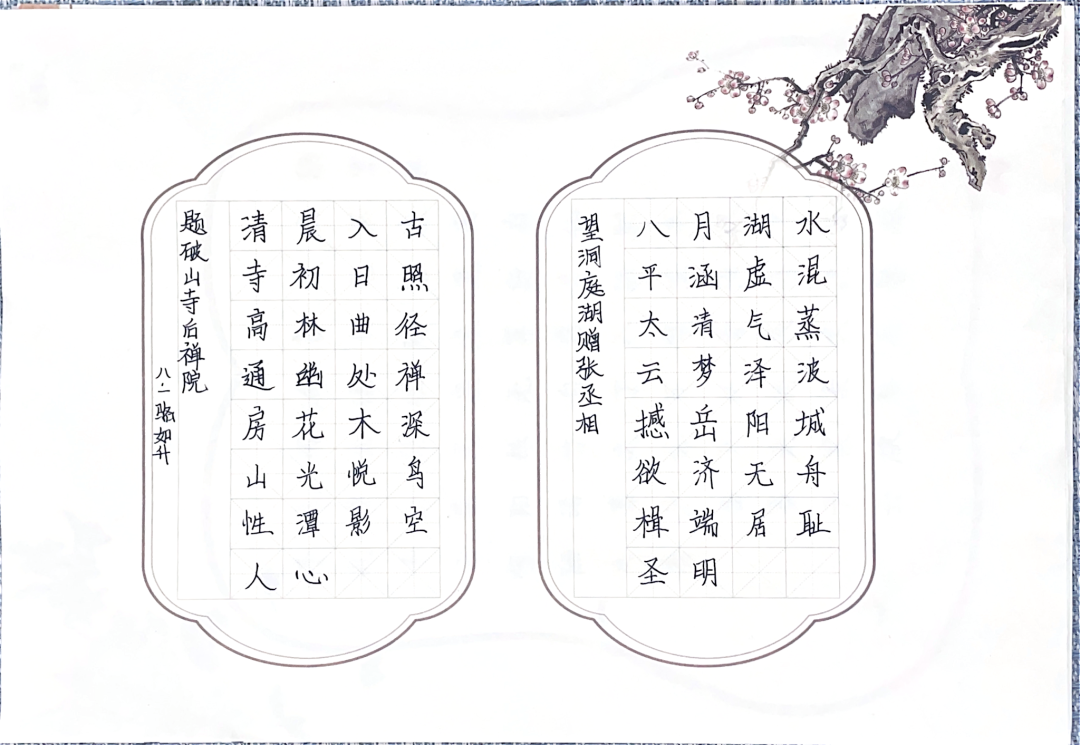 题破山寺后禅院
清晨入古
寺初日照
高林曲径
通幽处禅
房花木深
山光悦鸟
性潭影空
人心
八·一 如升
望洞庭湖赠张丞相
八月湖水
平涵虚混
太清气蒸
云梦泽波
撼岳阳城
欲济无舟
楫端居耻
圣明